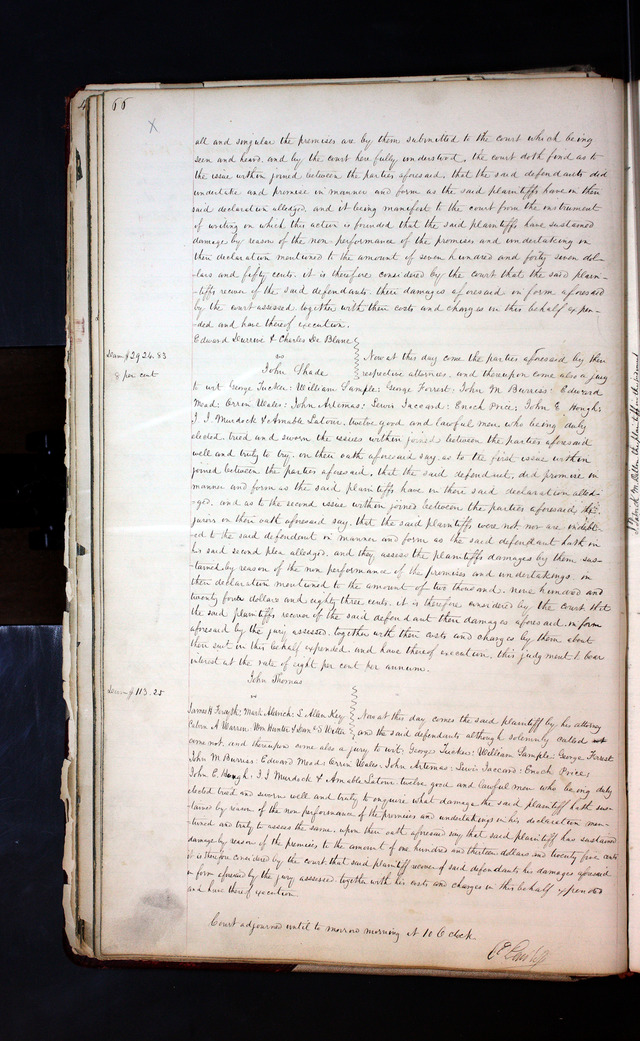 66
X
all and singular the premises are by them submitted to the court which being
seen and heard, and by the court here fully understood, the court doth find as to
the issue within joined between the parties aforesaid, that the said defendants did
undertake and promise in manner and form as the said plaintiffs have in their
said declaration alledged, and it being manifest to the court from the instrument
of writing on which this action is founded that the said plaintiffs have sustained
damages by reason of the non-performance of the promises and undertaking in
their declaration mentioned to the amount of seven hundred and forty seven dol-
-lars and fifty cents. it is therefore considered by the court that the said plain-
-tiffs recover of the said defendants their damages aforesaid in form aforesaid
by the court assessed together with their costs and charges in this behalf expen-
-ded and have thereof execution.
Edward & Charles De Blanc
$2924.83
8 per cent
vs
John Shade
Now at this day come the parties aforesaid by their
respective attornies, and thereupon come also a jury
to wit George Tucker: William Sample: George Forrest: John M Burniss: Edward
Mead: Orrin Wales: John Artimas: Lewis Jaccard: Enoch Price: John E Hough:
I. I. Murdock & Amable Latour. twelve good and lawful men who being duly
elected tried and sworn the issues within joined between the parties aforesaid
well and truly to try. on their oath aforesaid say, as to the first issue within
joined between the parties aforesaid, that the said defendant, did promise in
manner and form as the said plaintiffs have in their said declaration alled-
-ged. and as to the second issue within joined between the parties aforesaid the
jurors on their oath aforesaid say, that the said plaintiffs were not nor are indebt-
-ed to the said defendant in manner and form as the said defendant hath in
his said second plea alledged, and they assess the plaintiffs damages by them sus-
-tained by reason of the non performance of the promises and undertakings in
their declaration mentioned to the amount of two thousand nine hundred and
twenty four dollars and eighty three cents. it is therefore considered by the court that
the said plaintiffs recover of the said defendant their damages aforesaid in form
aforesaid by the jury assessed. together with their costs and charges by them about
their suit in this behalf expended and have thereof execution, this judgment to bear
interest at the rate of eight per cent per annum.
John Thomas
$113.25
vs
James H Forsyth: Mark Aldrich: S. Allen Key
Calvin A Warren: Wm Hunter
Now at this day comes the said plaintiff by his attorney
and the said defendants although solemnly called
come not, and thereupon come also a jury to wit: George Tucker: William Sample: George Forrest
John M Burniss: Edward Mead: Orrin Wales: John Artimas: Lewis Jaccard: Enoch Price:
John E. Hough: I. I Murdock & Amable Latour twelve good and lawful men who being duly
elected tried and sworn well and truly to enquire what damage the said plaintiff hath sus-
-tained by reason of the non performance of the promises and undertakings in his declaration men-
-tioned and truly to assess the same. upon their oath aforesaid say that said plaintiff has sustained
damages by reason of the premises to the amount of one hundred and thirteen dollars and twenty five cents
it is therefore considered by the court that said plaintiff recover of said defendants his damages aforesaid
in form aforesaid by the jury assessed. together with his costs and charges in this behalf expended
and have thereof execution
Court adjourned until to morrow morning at 10 O'clock